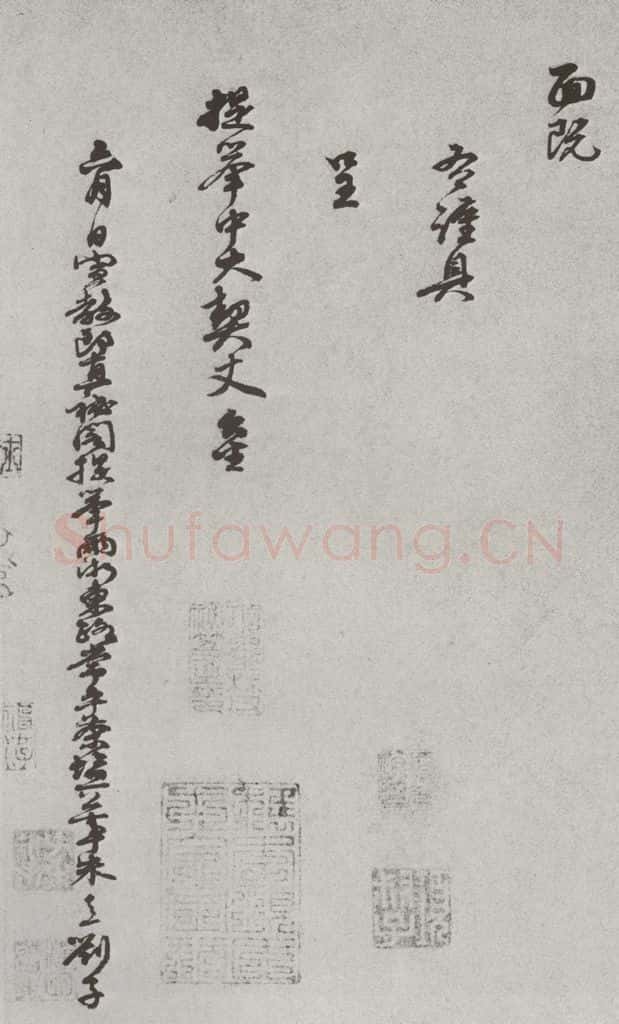 面既
右謹具
呈
提舉中大契丈 台坐
六月 日宣教郎直秘閣提舉兩浙東路常平茶鹽公事朱熹劄子
Shufawang.CN